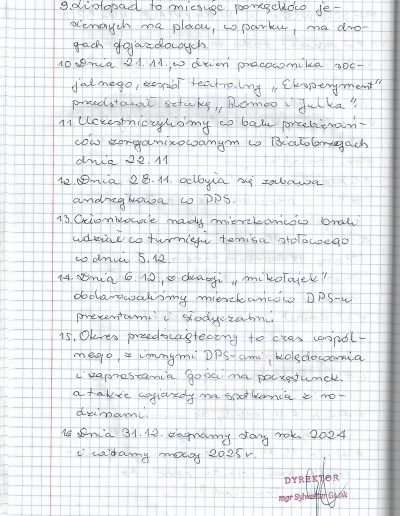 9. Listopad to miesiąc porządków je-
siennych na placu, w parku, na dro-
gach dojazdowych.
10. Dnia 21.11., w dzień pracownika soc-
jalnego, zespół teatralny „Eksperyment"
przedstawił sztukę „Romeo i Julka".
11. Uczestniczyliśmy w balu przebierań-
ców zorganizowanym w Białobrzegach
dnia 22.11
12. Dnia 28.11. odbyła się zabawa
andrzejkowa w DPS.
13. Członkowie rady mieszkańców brali
udział w turnieju tenisa stołowego
w dniu 5.12.
14. Dnia 6.12., z okazji „mikołajek"
obdarowaliśmy mieszkańców DPS-u
prezentami i słodyczami
15. Okres przedświąteczny to czas wspól-
nego, z innymi DPS-ami, kolędowania
i zapraszania gości na poczęstunek.
a także wyjazdy na spotkania z ro-
dzinami.
16. Dnia 31.12. żegnamy stary rok 2024
i witamy nowy 2025 r.
DYREKTOR
mgr Sylwester